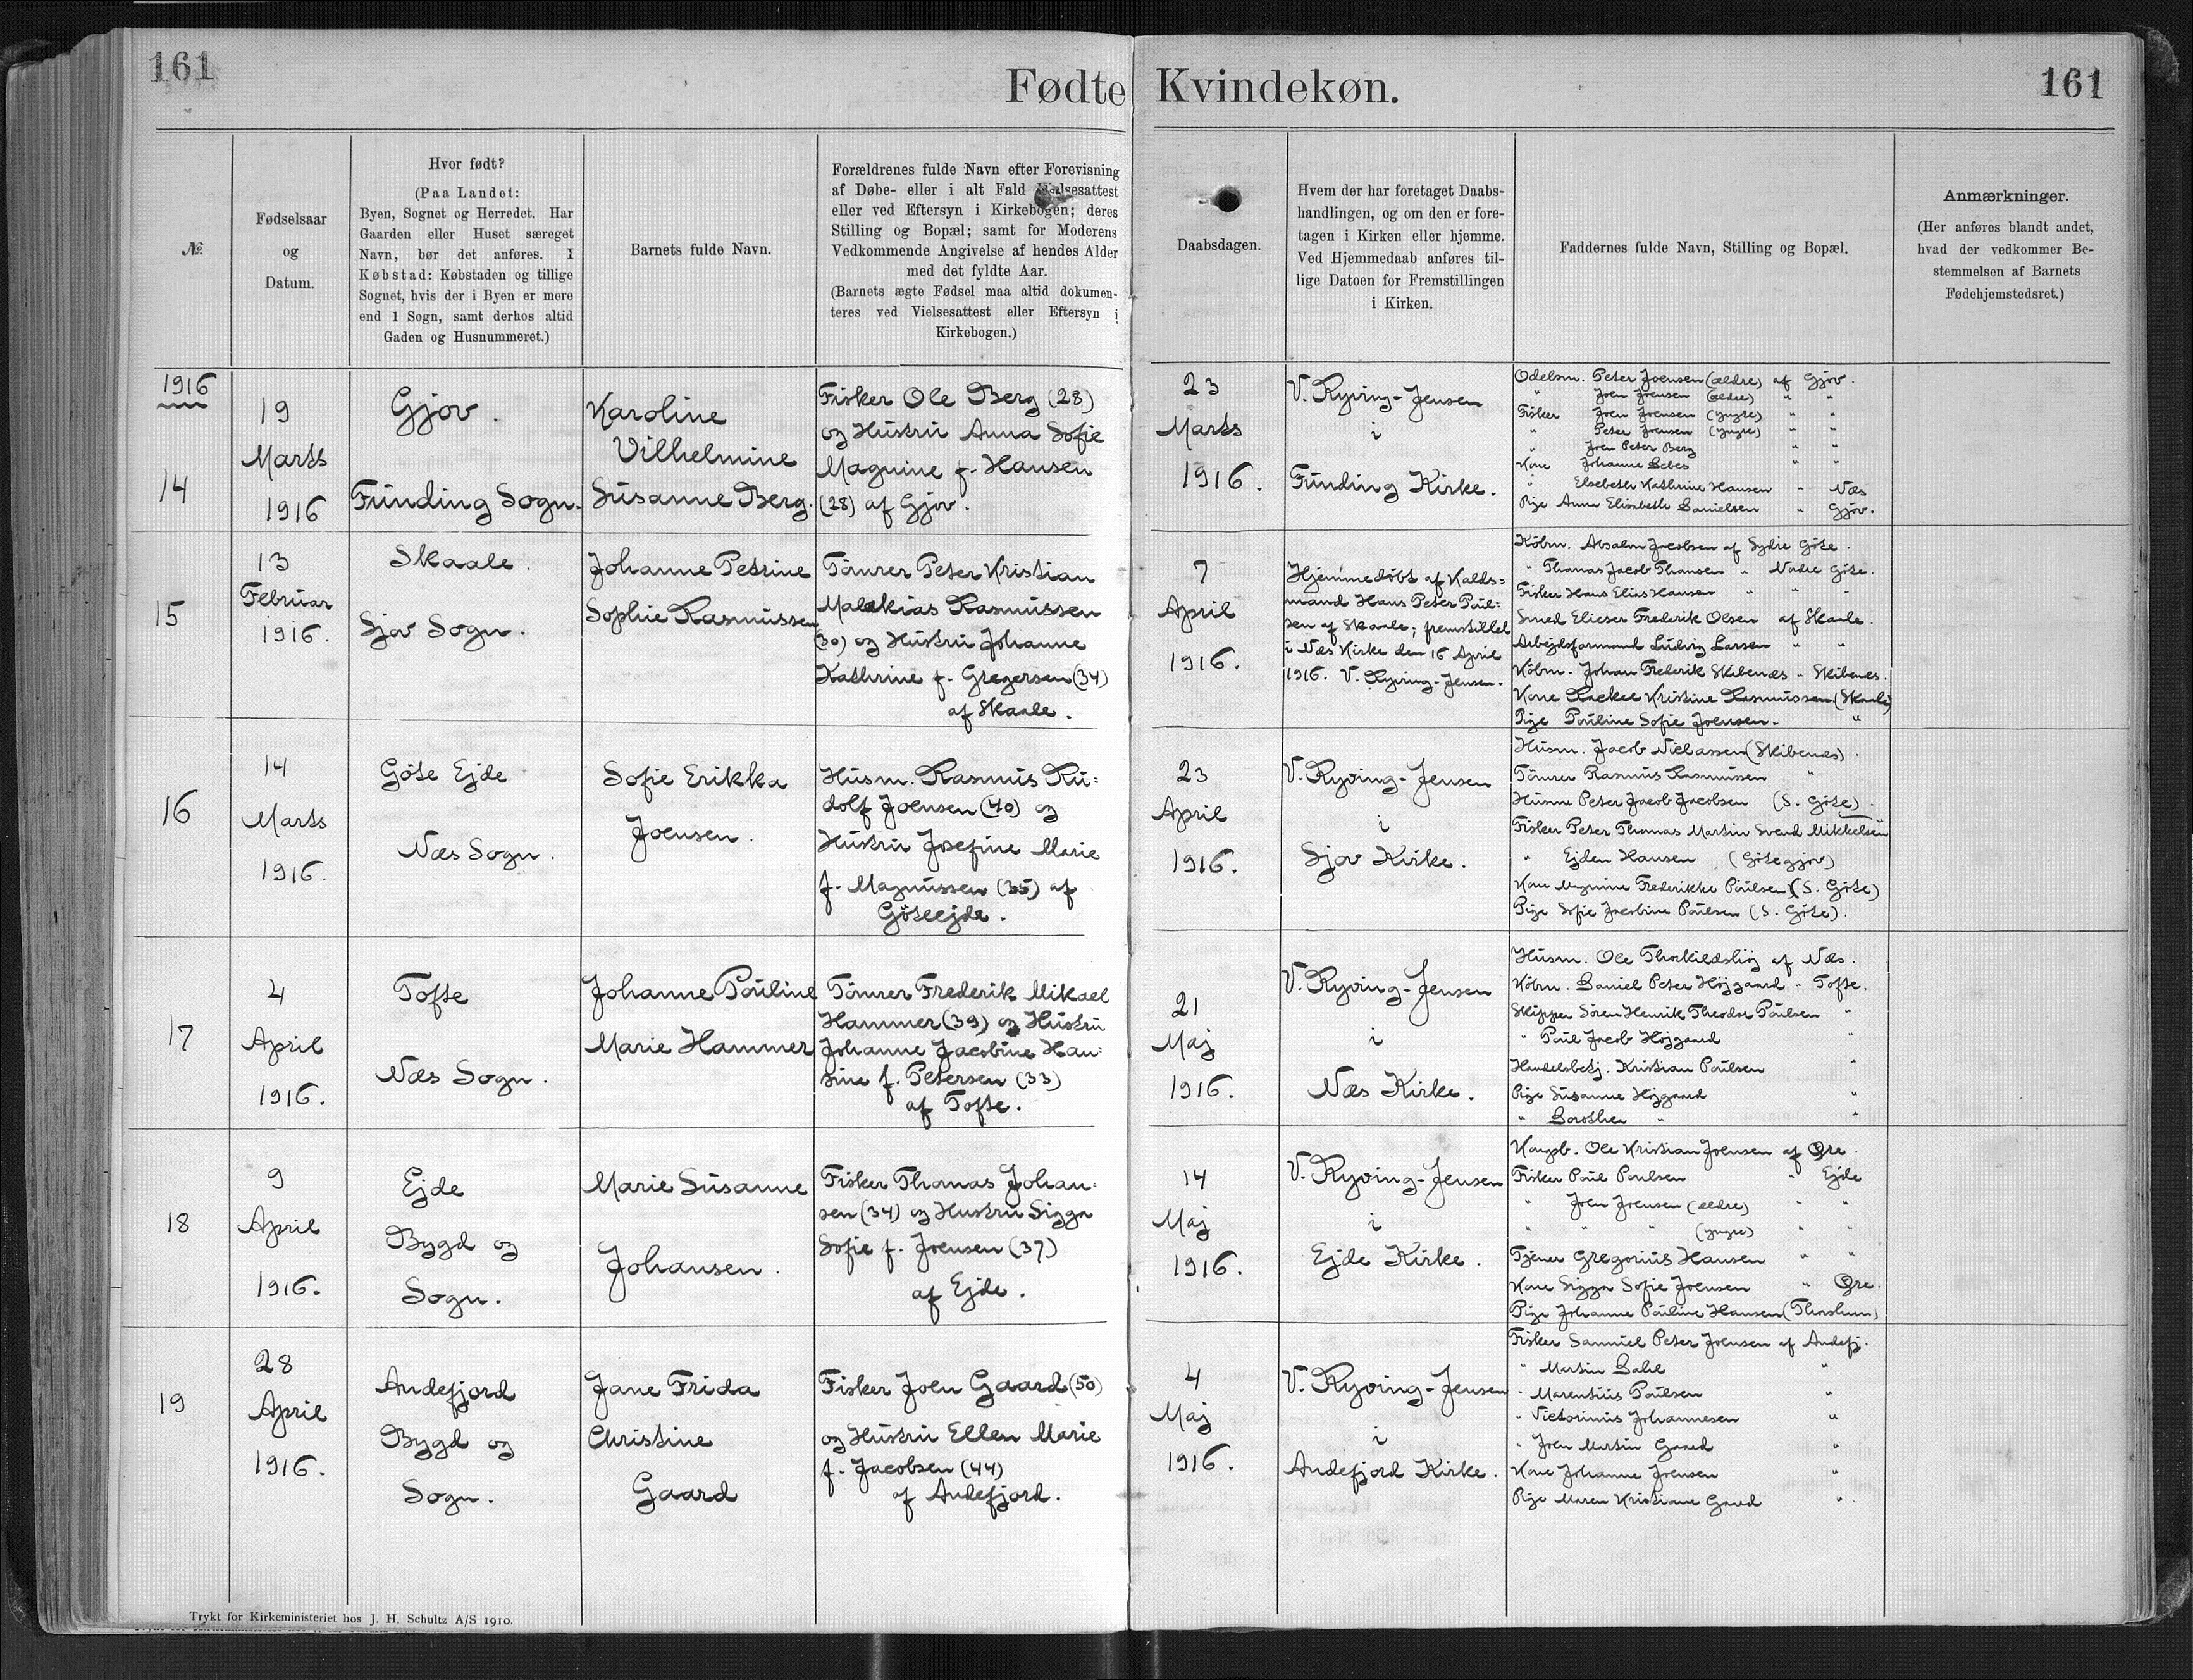 161
Fødte Kvindekøn.
161
№
Fødselsaar
og
Datum.
Hvor født?
(Paa Landet:
Byen, Sognet og Herredet. Har
Gaarden eller Huset særeget
Navn, bør det anføres. I
Købstad: Købstaden og tillige
Sognet, hvis der i Byen er mere
end 1 Sogn, samt derhos altid
Gaden og Husnummeret.)
Barnets fulde Navn.
Forældrenes fulde Navn efter Forevisning
af Døbe- eller i alt Fald Vielsesattest
eller ved Eftersyn i Kirkebogen; deres
Stilling og Bopæl; samt for Moderens
Vedkommende Angivelse af hendes Alder
med det fyldte Aar.
(Barnets ægte Fødsel maa altid dokumen-
teres ved Vielsesattest eller Eftersyn i
Kirkebogen.)
Daabsdagen.
Hvem der har foretaget Daabs-
handlingen, og om den er fore-
tagen i Kirken eller hjemme.
Ved Hjemmedaab anføres til-
lige Datoen for Fremstillingen
i Kirken.
Faddernes fulde Navn, Stilling og Bopæl.
Anmærkninger.
(Her anføres blandt andet,
hvad der vedkommer Be-
stemmelsen af Barnets
Fødehjemstedsret.)
1916
14
19
Marts
1916
Gjov.
Funding Sogn.
Karoline
Vilhelmine
Susanne Berg.
Fisker Ole Berg (28)
og Hustru Anna Sofie
Magnine f. Hansen
(28) af Gjov.
23
Marts
1916.
V. Ryving-Jensen
i
Funding Kirke.
Odelsm. Peter Joensen (ældre) af Gjov.
" Joen Joensen (ældre) " "
Fisker Joen Joensen (yngre) " "
" Peter Joensen (yngre) " "
" Joen Peter Berg " "
Kone Johanne Debes " "
" Elsebeth Kathrine Hansen " Næs
Pige Anna Elisabeth Danielsen " Gjov.
15
13
Februar
1916.
Skaale.
Sjov Sogn.
Johanne Petrine
Sophie Rasmussen
Tömrer Peter Kristian
Malakias Rasmussen
(30) og Hustru Johanne
Kathrine f. Gregersen (34)
af Skaale.
7
April
1916.
Hjemmedöbt af Kalds=
mand Hans Peter Poul=
sen af Skaale; fremstillet
i Næs Kirke den 16 April
1916. V. Ryving-Jensen.
Köbm. Absalon Jacobsen af Sydre Göte.
" Thomas Jacob Thomsen " Nodre Göte.
Fisker Hans Elias Hansen " " "
Smed Elieser Frederik Olsen af Skaale.
Arbejdsformand Ludvig Larsen " "
Köbm. Johan Frederik Skibenæs " Skibenæs.
Kone Rackel Kristine Rasmussen (Skaale)
Pige Pouline Sofie Joensen. "
16
14
Marts
1916.
Göte Ejde
Næs Sogn.
Sofie Erikka
Joensen.
Husm. Rasmus Ru=
dolf Joensen (40) og
Hustru Josefine Marie
f. Magnussen (35) af
Göteejde.
23
April
1916.
V. Ryving-Jensen
i
Sjov Kirke.
Husm. Jacob Niclassen (Skibenæs).
Tömrer Rasmus Rasmussen "
Husm Peter Jacob Jacobsen (S. Göte).
Fisker Peter Thomas Martin Svend Mikkelsen
" Ejden Hansen (Götegjov)
Kone Magnine Frederikke Poulsen (S. Göte)
Pige Sofie Jacobine Poulsen (S. Göte).
17
4
April
1916.
Tofte
Næs Sogn.
Johanne Pouline
Marie Hammer
Tömrer Frederik Mikael
Hammer (39) og Hustru
Johanne Jacobine Han=
sine f. Petersen (33)
af Tofte.
21
Maj
1916.
V. Ryving-Jensen
i
Næs Kirke.
Husm. Ole Thorkildshöj af Næs.
Köbm. Daniel Peter Höjgaard " Tofte.
Skipper Sören Henrik Theodor Poulsen "
" Poul Jacob Höjgaard "
Handelsbetj. Kristian Poulsen "
Pige Susanne Höjgaard "
" Dorothea " "
18
9
April
1916.
Ejde
Bygd og
Sogn.
Marie Susanne
Johansen.
Fisker Thomas Johan=
sen (34) og Hustru Sigga
Sofie f. Joensen (37)
af Ejde.
14
Maj
1916.
V. Ryving-Jensen
i
Ejde Kirke.
Kongsb. Ole Kristian Joensen af Øre.
Fisker Poul Poulsen " Ejde
" Joen Joensen (ældre) " "
" " " (yngre) " "
Tjener Gregorius Hansen " "
Kone Sigga Sofie Joensen " Øre.
Pige Johanne Pouline Hansen (Thorshavn)
19
28
April
1916.
Andefjord
Bygd og
Sogn.
Jane Frida
Christine
Gaard
Fisker Joen Gaard (50)
og Hustru Ellen Marie
f. Jacobsen (44)
af Andefjord.
4
Maj
1916.
V. Ryving-Jensen
i
Andefjord Kirke.
Fisker Samuel Peter Joensen af Andefj.
" Martin Dahl "
" Marentius Poulsen "
" Victorinus Johannesen "
" Joen Martin Gaard "
Kone Johanne Joensen "
Pige Maren Kristiane Gaard "
Trykt for Kirkeministeriet hos J. H. Schultz A/S 1910.